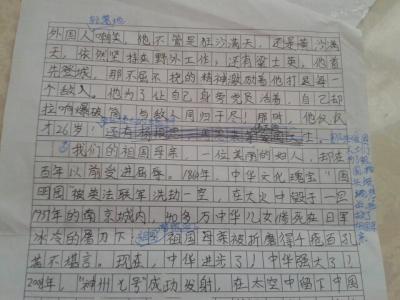 轻蔑地
外国人嘲笑，他不管是狂沙满天，还是黄沙满
天，依然坚持在野外工作，还有梁士英，他首
先登城，那不屈不挠的精神激励着他打走每一
个敌人。他为了让自己身旁党员活着，自己却
拉响爆破筒，与敌人同归于尽！那时，他仅仅
才26岁！还有
我们的祖国母亲，一位美丽的妇人，却在
百年以前受进屈辱。1860年，中华文化瑰宝"圆
明园"被英法联军洗劫一空，在大火中毁于一旦
1937年的南京城内，40多万中华儿女惨死在日军
冰冷的屠刀下，祖国母亲被折磨得千疮百孔
苦不堪言。现在，中华进步了！中华强大了！
"神州七号"成功发射，在太空中留下中国